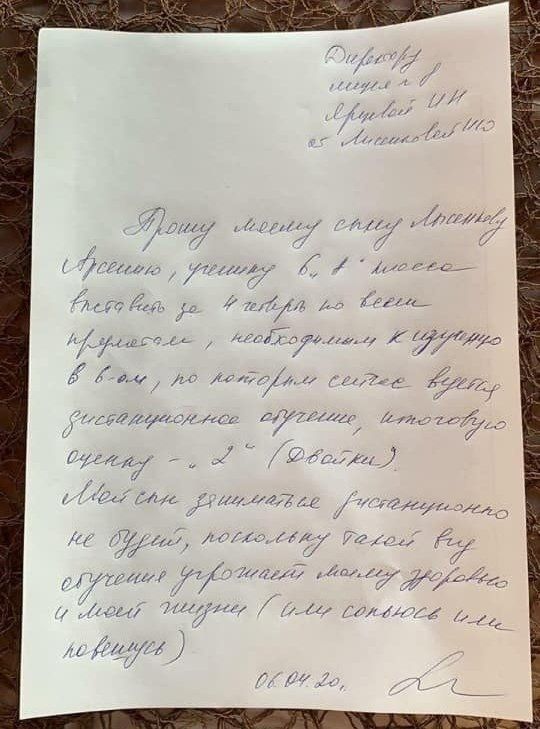 Директору
лицея № 8
Ярцевой И Н
от Лысенковой И Ю
Прошу моему сыну Лысенкову
Арсению, ученику 6 „А" класса
выставить за 4 четверть по всем
предметам, необходимым к изучению
в 6-ом, по которым сейчас ведется
дистанционное обучение, итоговую
оценку - „2" (двойки).
Мой сын заниматься дистанционно
не будет, поскольку такой вид
обучения угрожает моему здоровью
и моей жизни (или сопьюсь или
повешусь)
06.04.20г.